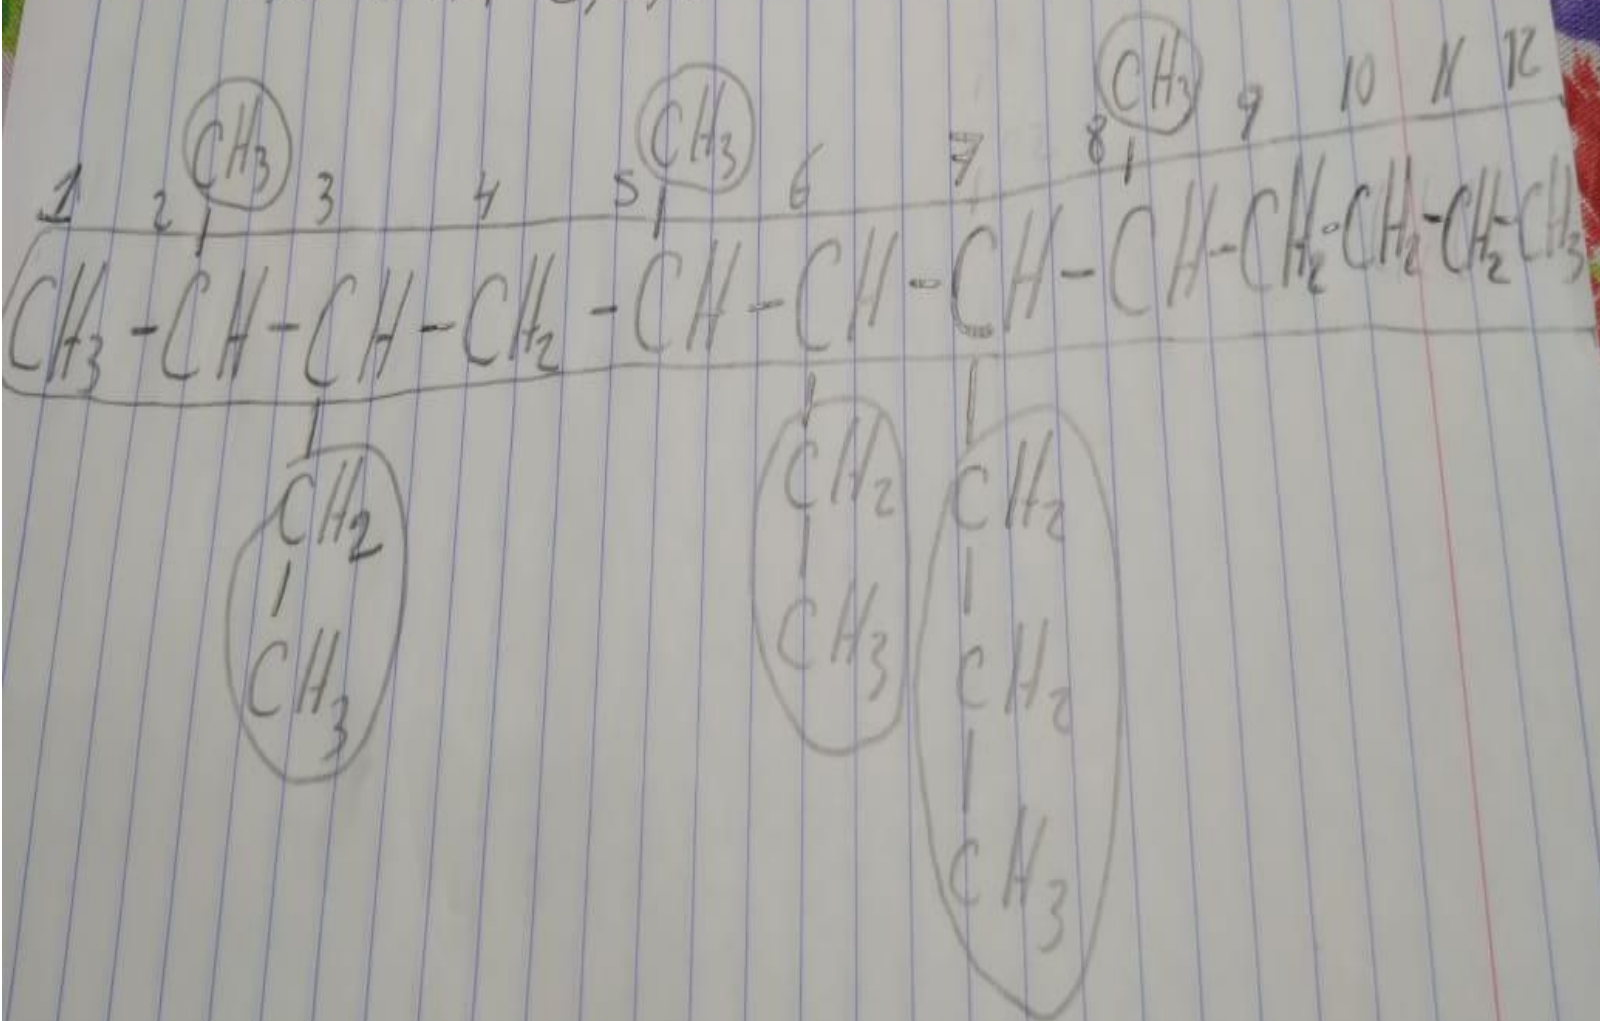 CH3 CH3 CH3
1 2 3 4 5 6 7 8 9 10 11 12
CH3-CH-CH-CH2-CH-CH-CH-CH-CH2-CH2-CH2-CH3
CH2 CH2 CH2
CH3 CH3 CH2
CH3